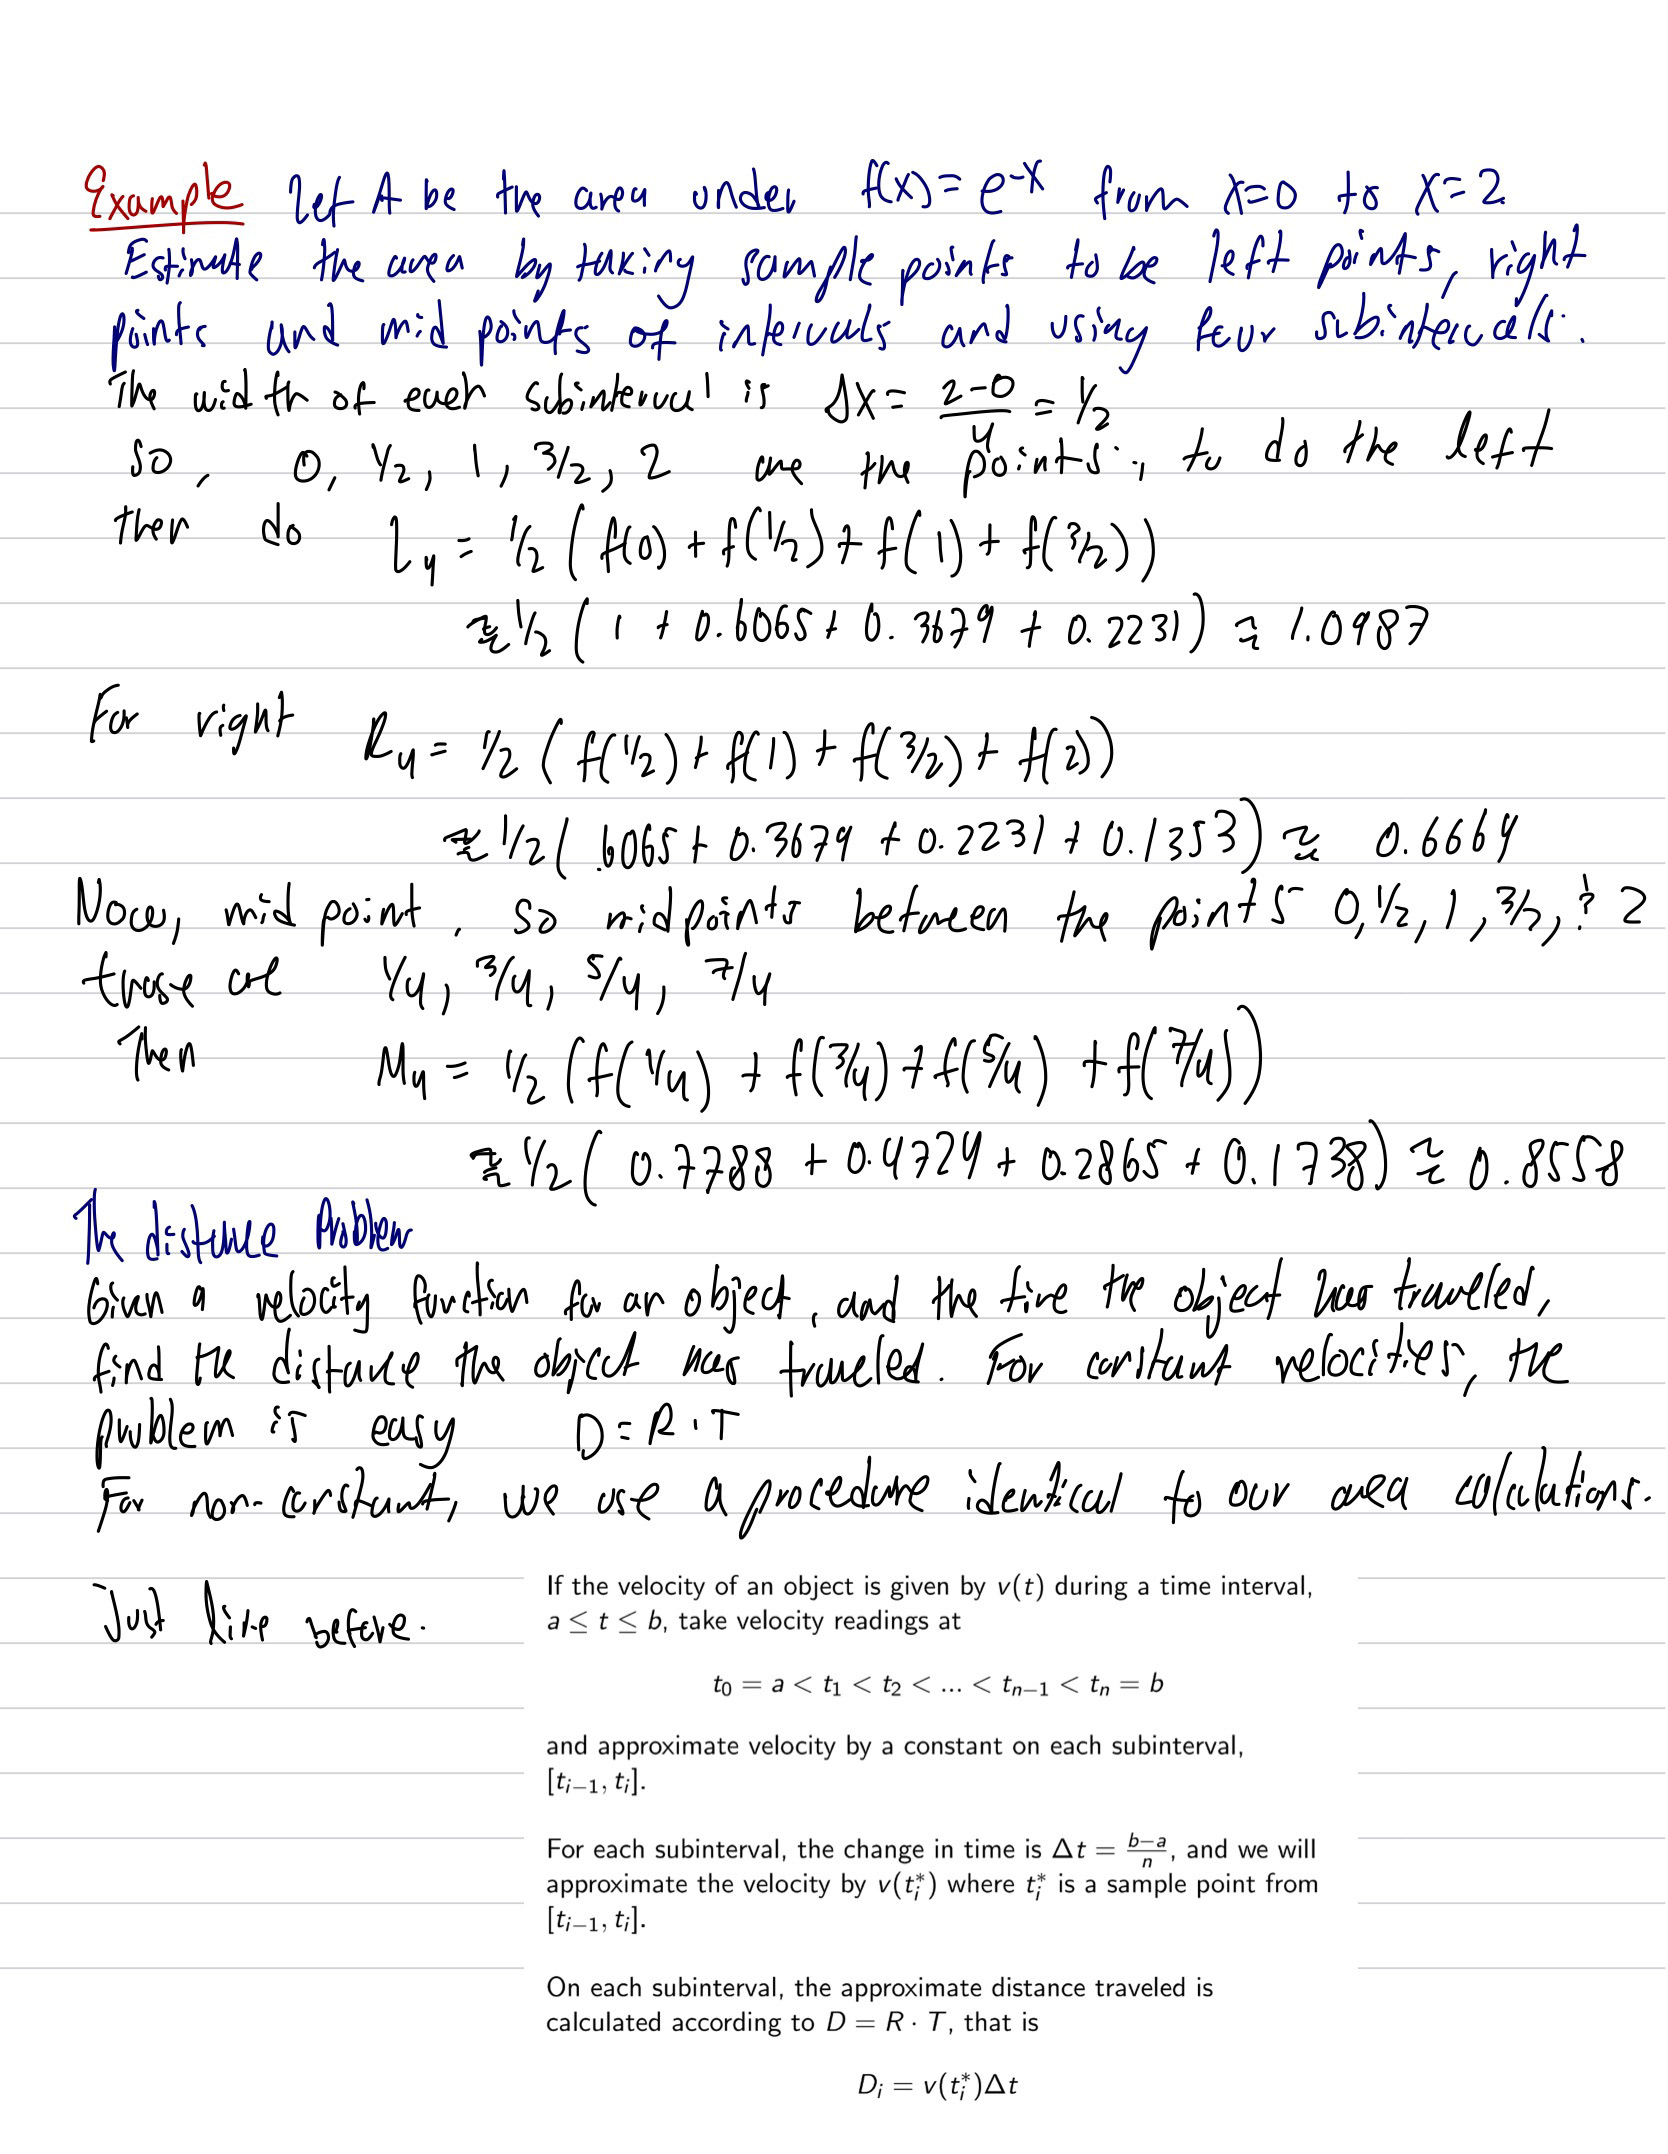 Example Let A be the area under f(x) = e^-x from x=0 to x=2
Estimate the area by taking sample points to be left points, right
points and mid points of intervals and using four subintervals.
The width of each subinterval is Δx = (2-0)/4 = 1/2
so, 0, 1/2, 1, 3/2, 2 are the points; to do the left
then do L₄ = 1/2 ( f(0) + f(1/2) + f(1) + f(3/2))
≈ 1/2 ( 1 + 0.6065 + 0.3679 + 0.2231) ≈ 1.0987
For right R₄ = 1/2 ( f(1/2) + f(1) + f(3/2) + f(2))
≈ 1/2( .6065 + 0.3679 + 0.2231 + 0.1353) ≈ 0.6664
Now, mid point, so midpoints between the points 0, 1/2, 1, 3/2, & 2
those are 1/4, 3/4, 5/4, 7/4
Then M₄ = 1/2 (f(1/4) + f(3/4) + f(5/4) + f(7/4))
≈ 1/2 ( 0.7788 + 0.4724 + 0.2865 + 0.1738) ≈ 0.8558
The distance Problem
Given a velocity function for an object, and the time the object has traveled,
find the distance the object has traveled. For constant velocities, the
problem is easy D = R·T
For non-constant, we use a procedure identical to our area calculations.
Just like before.
If the velocity of an object is given by v(t) during a time interval,
a ≤ t ≤ b, take velocity readings at
t₀ = a < t₁ < t₂ < ... < tₙ₋₁ < tₙ = b
and approximate velocity by a constant on each subinterval,
[tᵢ₋₁, tᵢ].
For each subinterval, the change in time is Δt = (b−a)/n, and we will
approximate the velocity by v(tᵢ*) where tᵢ* is a sample point from
[tᵢ₋₁, tᵢ].
On each subinterval, the approximate distance traveled is
calculated according to D = R · T, that is
Dᵢ = v(tᵢ*)Δt